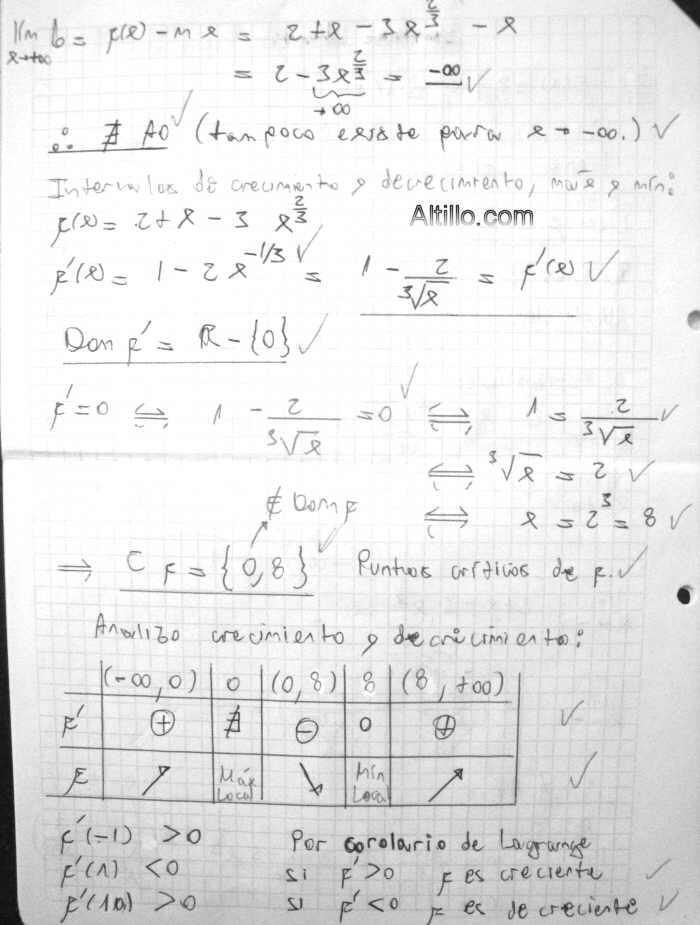 lim b = f(x) - m x = 2 + x - 3x^{2/3} - x
x→+∞
= 2 - 3x^{2/3} = -∞ ✓
→ +∞
∴ ∄ AO ✓ (tampoco existe para x → -∞.) ✓
Intervalos de crecimiento y decrecimiento, máx y mín:
f(x) = 2 + x - 3 x^{2/3}
Altillo.com
f'(x) = 1 - 2 x^{-1/3} ✓ = 1 - 2/∛x = f'(x) ✓
Dom f' = ℝ - {0} ✓
f' = 0 ⟺ 1 - 2/∛x = 0 ✓ ⟺ 1 = 2/∛x ✓
⟺ ∛x = 2 ✓
∉ Dom f ⟺ x = 2^3 = 8 ✓
⟹ C f = {0, 8} ✓ Puntos críticos de f. ✓
Analizo crecimiento y decrecimiento:
(-∞, 0) 0 (0, 8) 8 (8, +∞)
f' ⊕ ∄ ⊖ 0 ⊕ ✓
f ↗ Máx Local ↘ Mín Local ↗ ✓
f'(-1) > 0 Por corolario de Lagrange
f'(1) < 0 si f' > 0 f es creciente ✓
f'(10) > 0 si f' < 0 f es decreciente ✓